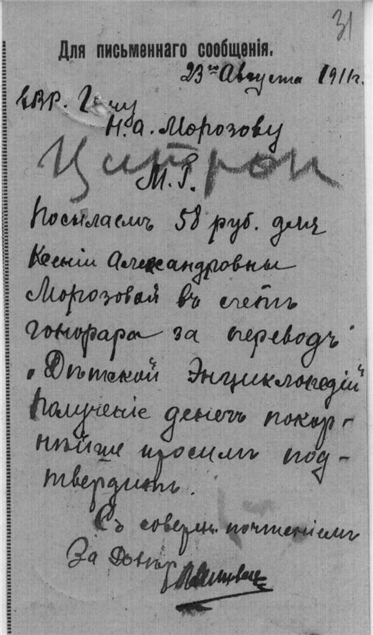 31
Для письменнаго сообщенія.
23го Августа 1911г.
Н. А. Морозову
Цитрон
М. Г.
Посылаемъ 58 руб. для
Ксеніи Александровны
Морозовой въ счетъ
гонорара за переводъ
„Дѣтской Энциклопедій
Полученіе денегъ покор-
нѣйше просимъ под-
твердить.
Съ соверш. почтеніемъ
За